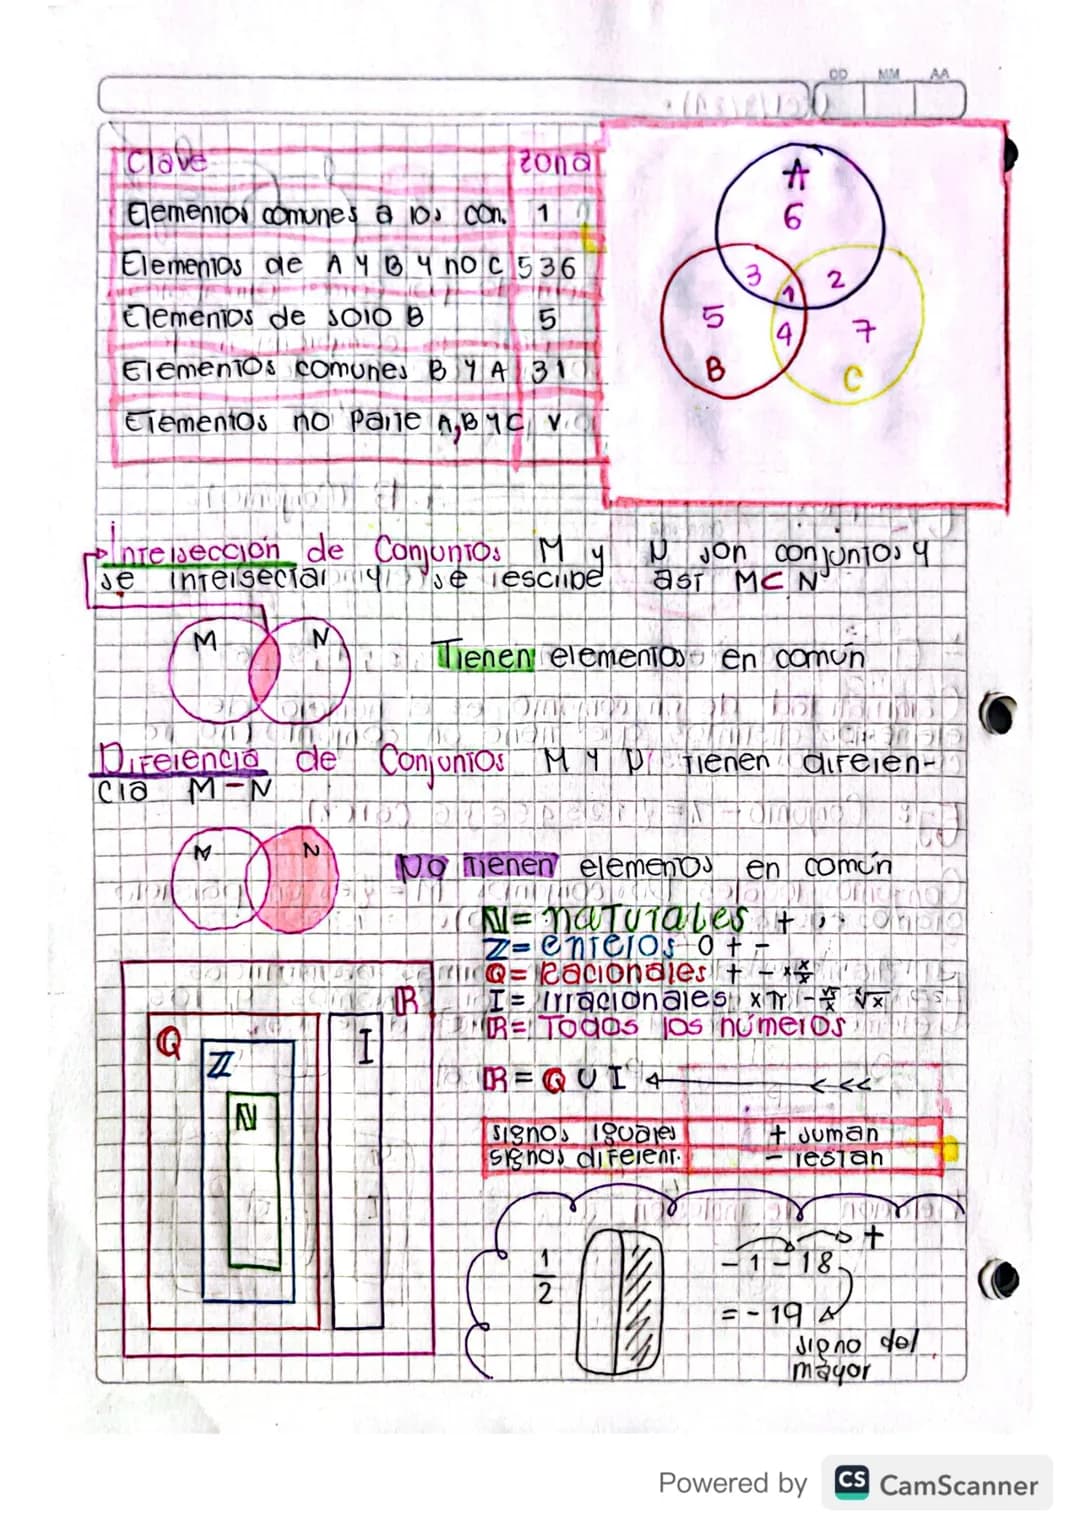 DD MM AA
Clave zona
Elementos comunes a los con. 1
Elementos de A y B y no C 536
Elementos de solo B 5
Elementos comunes B y A 31
Elementos no parte A,B y C V
A
6
3 1 2
5 4 7
B C
Intersección de Conjuntos M y N son conjuntos y
se intersectar y se rescribe así M⊂N
M N
Tienen elementos en común
Diferencia de Conjuntos M y N tienen diferen-
cia M-N
M N
No Tienen elementos en común
N= naturales +
Z= enteros 0 + -
Q= Racionales + -
I= irracionales
R= Todos los números
R = Q U I ← <<<
R
Q I
Z
N
signos iguales + suman
signos diferent. - restan
1/2
-1-18 +
= -19
signo del
mayor
Powered by CS CamScanner